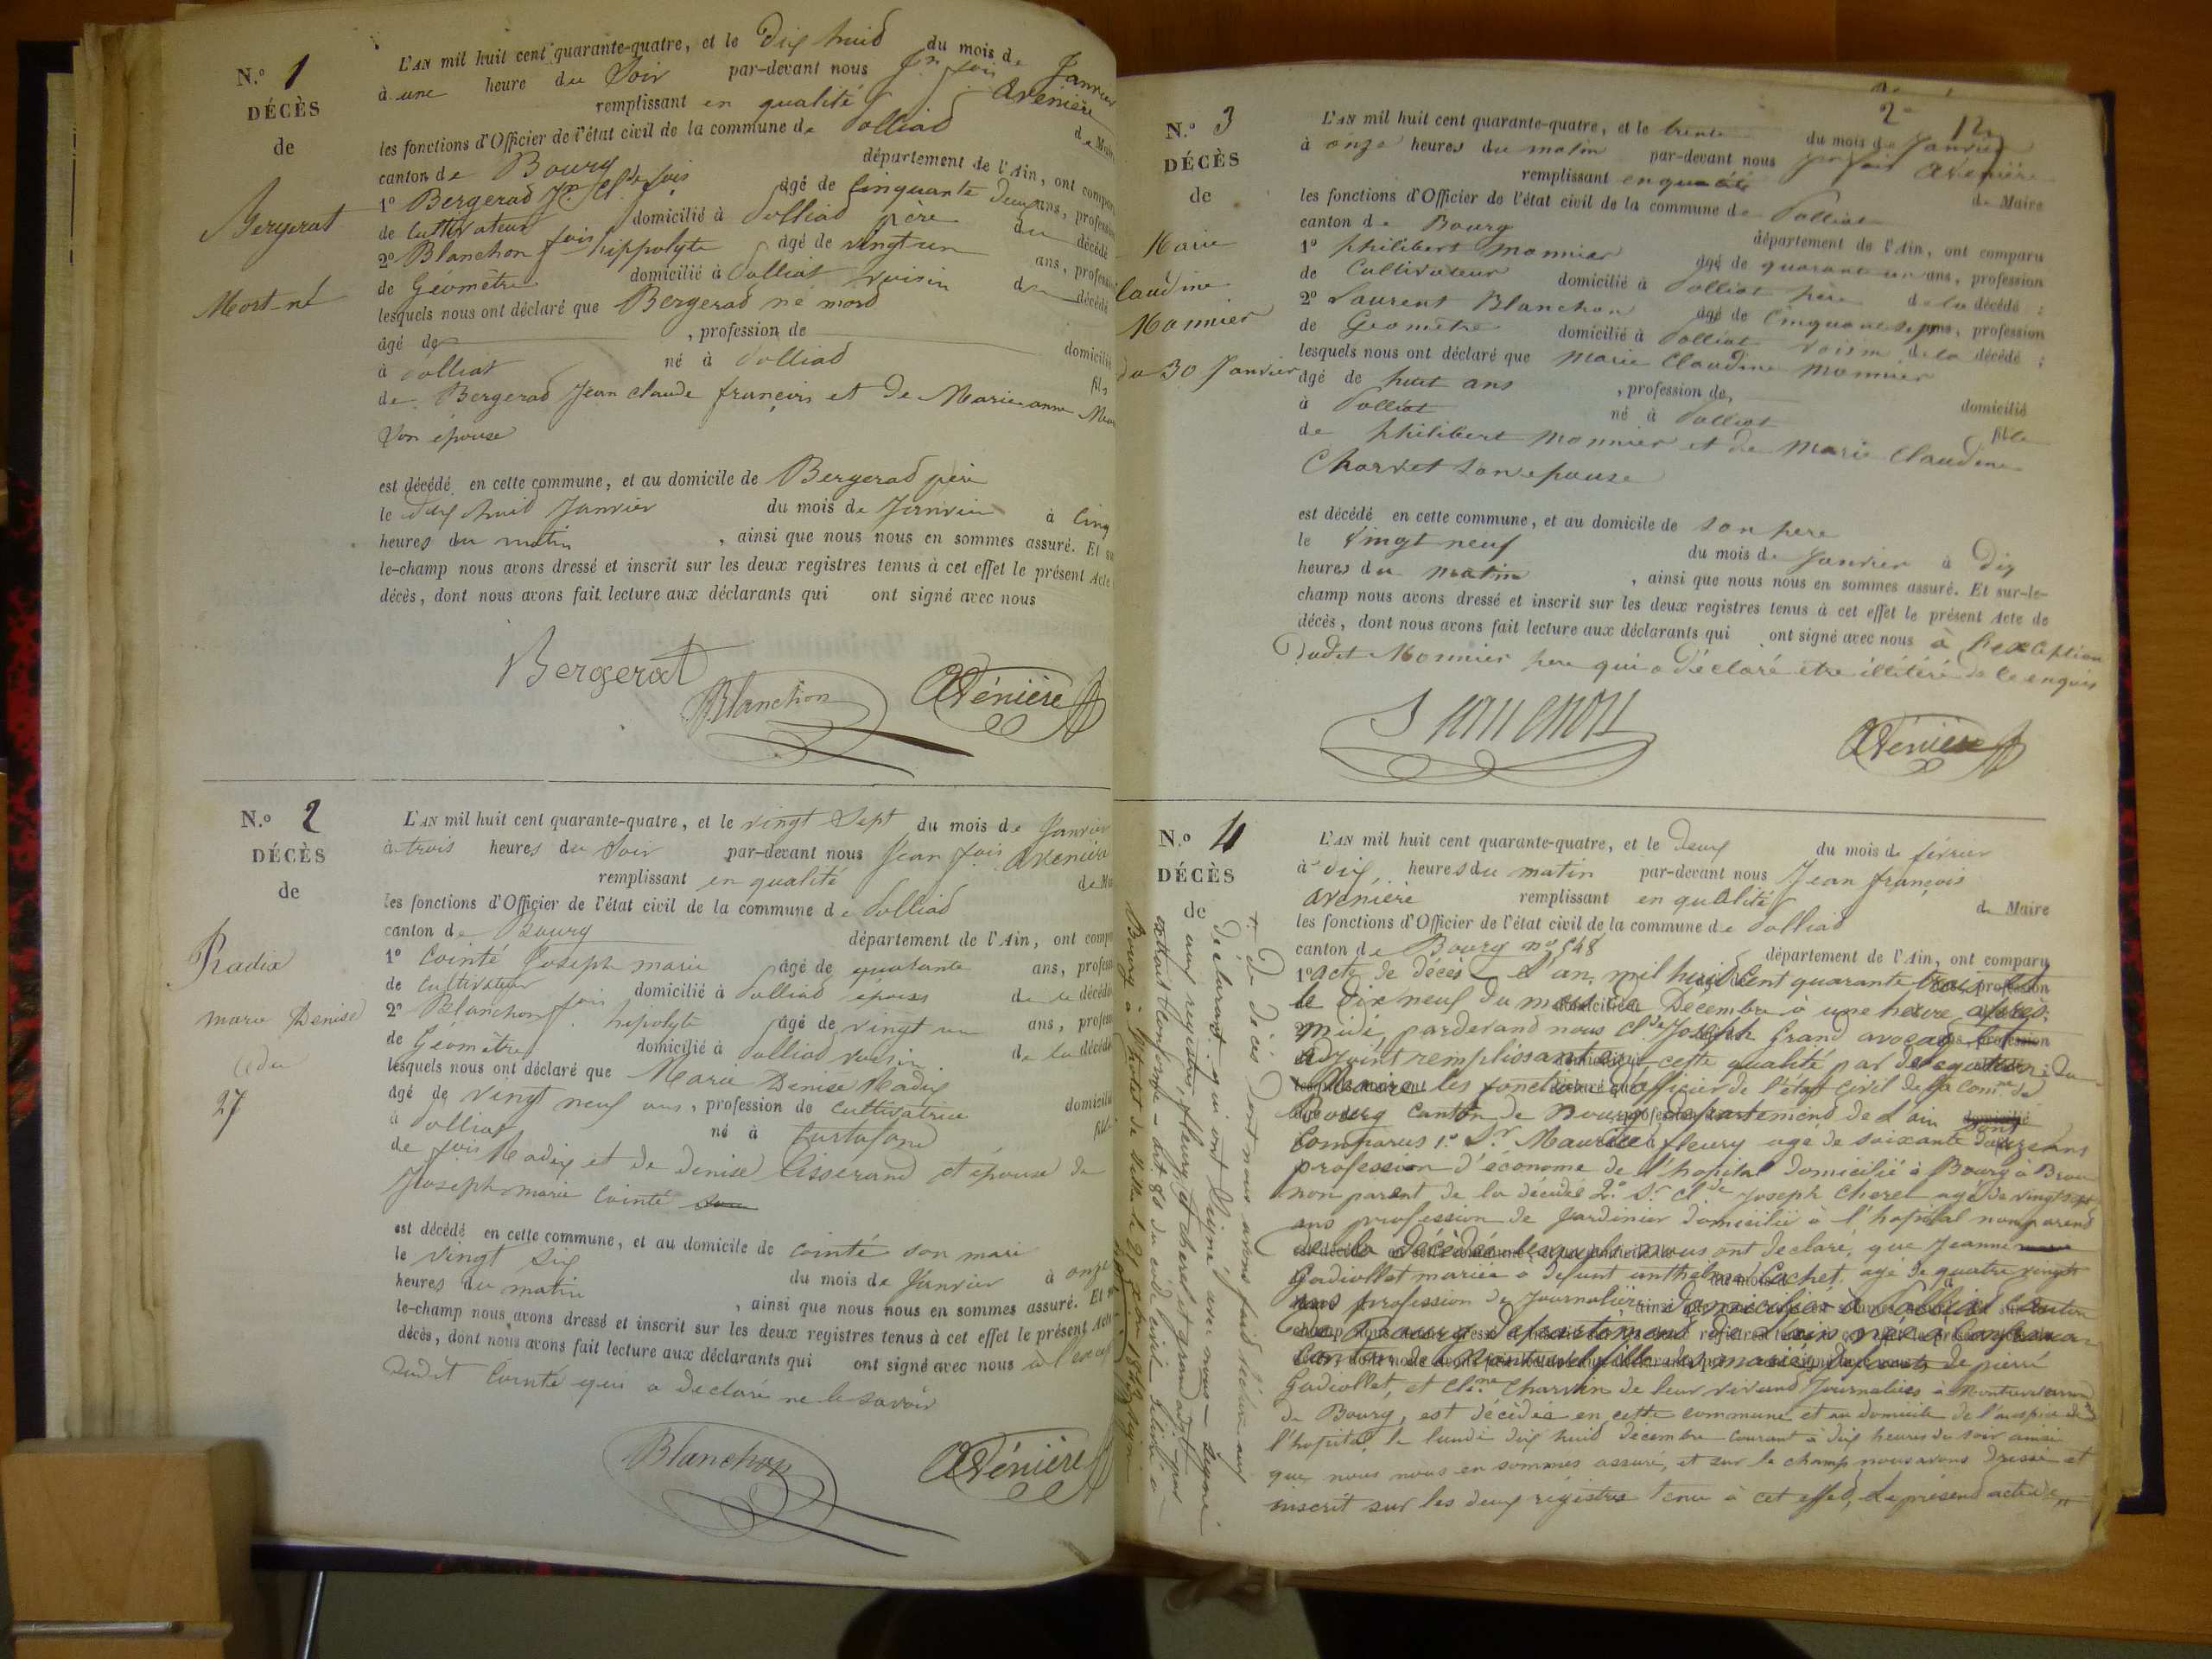 N.° 1
DÉCÈS
de
Bergerat
Mort-né
L'AN mil huit cent quarante-quatre, et le dix huid du mois de Janvier
à une heure du Soir par-devant nous Jn fois Avenière
remplissant en qualité de Maire
les fonctions d'Officier de l'état civil de la commune de Polliad
canton de Bourg département de l'Ain, ont comparu
1° Bergerad Jn Cl.de fois âgé de Cinquante deux ans, profession
de Cultivateur domicilié à Polliad père du décédé
2° Blanchon fois hippolyte âgé de vingt un ans, profession
de Géomètre domicilié à Polliat voisin du décédé
lesquels nous ont déclaré que Bergerad né mord
âgé de , profession de domicilié
à Polliat né à Polliad fils
de Bergerad Jean Claude françois et de Marie anne
Son épouse
est décédé en cette commune, et au domicile de Bergerad père
le dix huid Janvier du mois de Janvier à Cinq
heures du matin , ainsi que nous nous en sommes assuré. Et sur
le-champ nous avons dressé et inscrit sur les deux registres tenus à cet effet le présent Acte
décès, dont nous avons fait lecture aux déclarants qui ont signé avec nous
Bergerat
Blanchon
Avénière
N.° 2
DÉCÈS
de
Radix
marie Denise
du
27
L'AN mil huit cent quarante-quatre, et le vingt Sept du mois de Janvier
à trois heures du Soir par-devant nous Jean fois Avenière
remplissant en qualité de Maire
les fonctions d'Officier de l'état civil de la commune de Polliad
canton de Bourg département de l'Ain, ont comparu
1° Cointé Joseph marie âgé de quarante ans, profession
de Cultivateur domicilié à Polliad époux de la décédée
2° Blanchon fois hipolyte âgé de vingt un ans, profession
de Géomètre domicilié à Polliad voisin de la décédée
lesquels nous ont déclaré que Marie Denise Radix
âgé de vingt neuf ans, profession de Cultivatrice domicilié
à Polliat né à Curtafond fille
de fois Radix et de Denise Tisserand et épouse de
Joseph marie Cointé
est décédé en cette commune, et au domicile de Cointé son mari
le vingt Six du mois de Janvier à onze
heures du matin , ainsi que nous nous en sommes assuré. Et sur
le-champ nous avons dressé et inscrit sur les deux registres tenus à cet effet le présent Acte
décès, dont nous avons fait lecture aux déclarants qui ont signé avec nous à l'excep
dudit Cointé qui a declaré ne le savoir
Blanchon
Avénière
2
N.° 3
DÉCÈS
de
Marie
Claudine
Monnier
du 30 Janvier
L'AN mil huit cent quarante-quatre, et le trente du mois de Janvier
à onze heures du matin par-devant nous Jn fois Avénière
remplissant en qualité de Maire
les fonctions d'Officier de l'état civil de la commune de Polliat
canton de Bourg département de l'Ain, ont comparu
1° philibert Monnier âgé de quarante un ans, profession
de Cultivateur domicilié à Polliat père de la décédé ;
2° Laurent Blanchon âgé de Cinquante sept ans, profession
de Géomètre domicilié à Polliat voisin de la décédé ;
lesquels nous ont déclaré que Marie Claudine Monnier
âgé de huit ans , profession de, domicilié
à Polliat né à Polliat fille
de philibert Monnier et de Marie Claudine
Charvet son epouse
est décédé en cette commune, et au domicile de son pere
le vingt neuf du mois de Janvier à Dix
heures du matin , ainsi que nous nous en sommes assuré. Et sur-le-
champ nous avons dressé et inscrit sur les deux registres tenus à cet effet le présent Acte de
décès, dont nous avons fait lecture aux déclarants qui ont signé avec nous à l'exception
Dudit Monnier pere qui a déclaré etre illitéré de ce enquis
Avénière
N.° 4
DÉCÈS
de
L'AN mil huit cent quarante-quatre, et le Deux du mois de février
à dix heures du matin par-devant nous Jean françois
Avénière remplissant en qualité de Maire
les fonctions d'Officier de l'état civil de la commune de Polliad
canton de Bourg no 548 département de l'Ain, ont comparu
1° acte de décès L'an mil huit Cent quarante trois et
le Dix neuf du mois de Decembre à une heure après
midi, pardevand nous Cl.de Joseph Grand avocat et
adjoint remplissant en cette qualité par délégation du
Maire les fonctions d'officier de l'état civil de la Com.ne de
Bourg Canton de Bourg Departement de L'ain sont
Comparus 1.° S.r Maurice fleury agé de soixante douze ans
profession d'économe de l'hopital domicilié à Bourg à Brou
non parent de la décédée 2.° S.r Cl.de Joseph Cherel agé de vingt sept
ans profession de Jardinier domicilié à l'hopital non parend
de la décédée lesquels nous ont declaré, que Jeanne
Gadiollet mariée à defunt anthelme Cachet agé de quatre vingts
ans profession de Journalière domiciliée à Polliat Canton
de Bourg Departement de l'ain née à
Canton de Montrevel fille des mariés defunts de pierre
Gadiollet, et Cl.ne Charvin de leur vivand Journaliers à Montrevel arrond
de Bourg, est décédée en cette commune et au domicile de l'auspice de
l'hopital le lundi dix huid décembre courant à dix heures du soir ainsi
que nous nous en sommes assuré, et sur le champ nous avons dressé et
inscrit sur les deux régistres tenu à cet effed, le présend acte de
+ De décès dont nous avons faid lecture aux
déclarants qui ont Signé avec nous — Signé
aux registres, fleury et cherel et grand adjt. pour
extrait Conforme — art. 80 du code civil délivré à
Bourg à l'hotel de ville le 21 xbre 1843 Signé